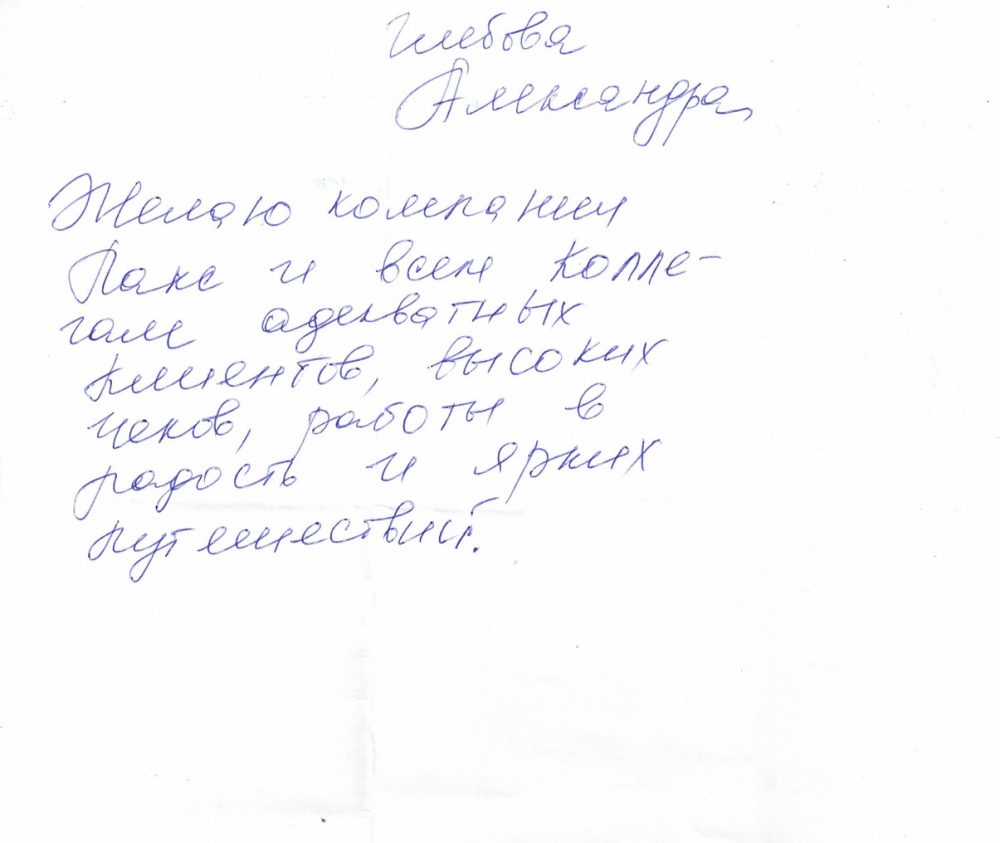 Глебова
Александра
Желаю компании
Пакс и всем колле-
гам адекватных
клиентов, высоких
чеков, работы в
радость и ярких
путешествий.